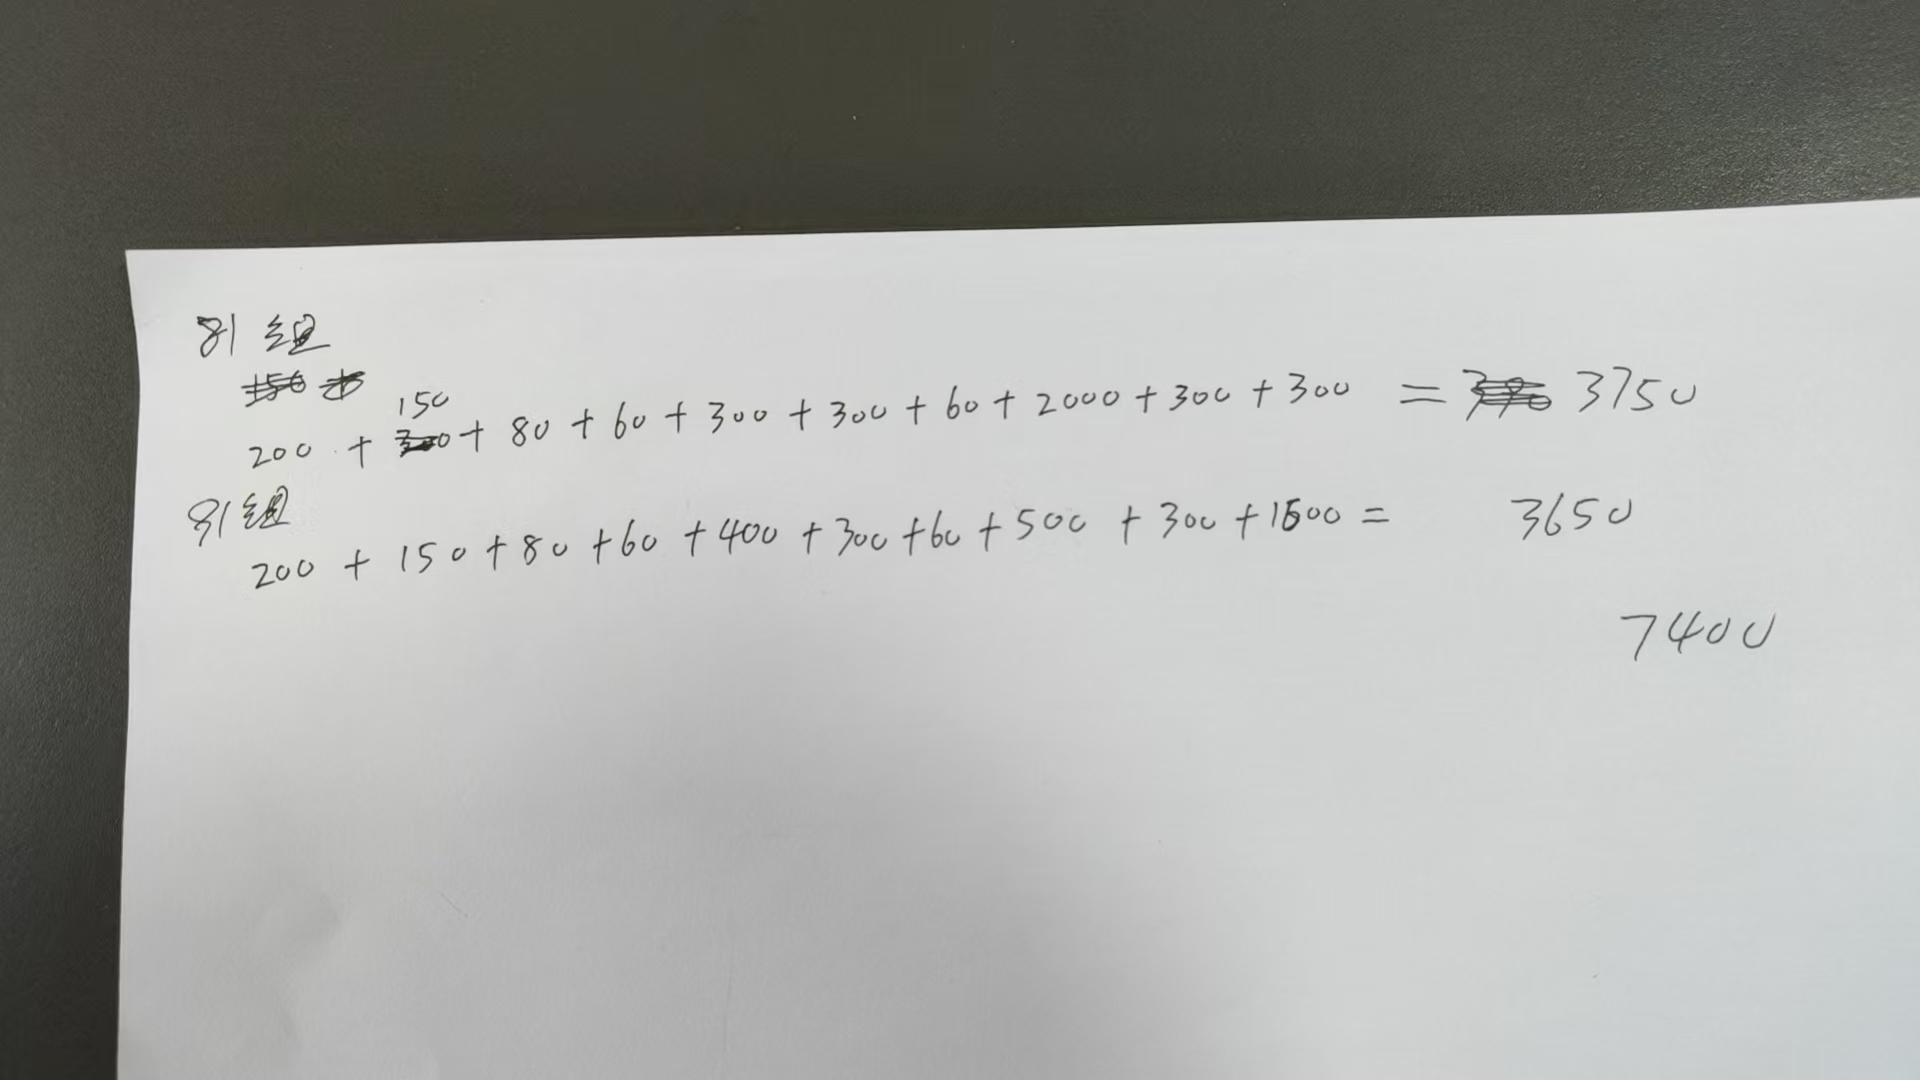 81组
150
200 + + 80 + 60 + 300 + 300 + 60 + 2000 + 300 + 300 = 3750
91组
200 + 150 + 80 + 60 + 400 + 300 + 60 + 500 + 300 + 1600 = 3650
7400